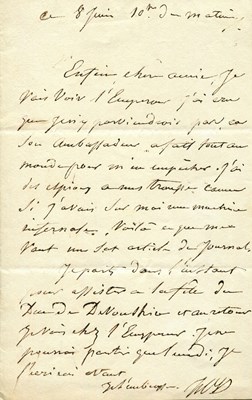 ce 8 juin 10h du matin
Enfin cher amie, je
vais voir l'Empereur j'ai cru
que je n'y parviendrois pas car
son Ambassadeur a fait tout au
monde pour m'en empêcher j'ai
des espions a mes trousses, comme
si j'avais sur moi une machine
infernale. Voilà ce que me
vaut un sot article de journal.
Je pars dans l'instant
pour assister a la fête du
Duc de Devonshire et au retour
je vais chez l'Empereur. Je ne
pourrai partir que lundi, je
t'écrirai avant
Je t'embrasse